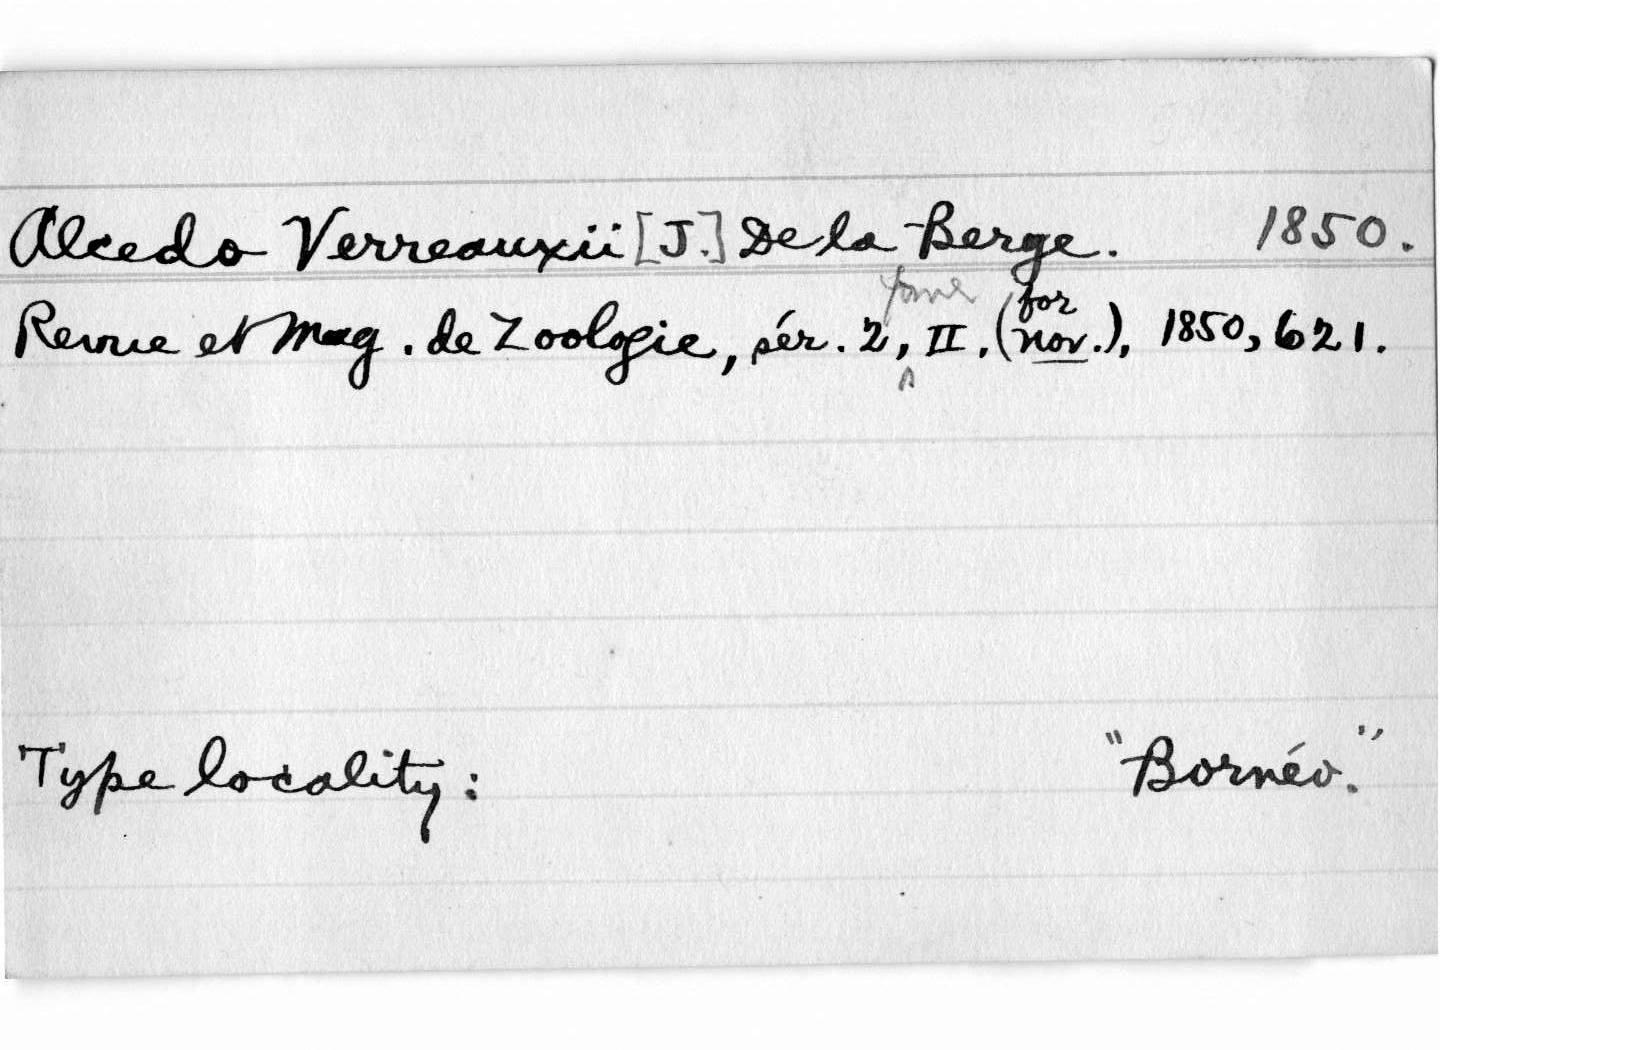 Alcedo Verreauxii [J.] De la Berge. 1850.
Revue et Mag. de Zoologie, sér. 2, tome II, (for nov.), 1850, 621.
Type locality: "Bornéo."